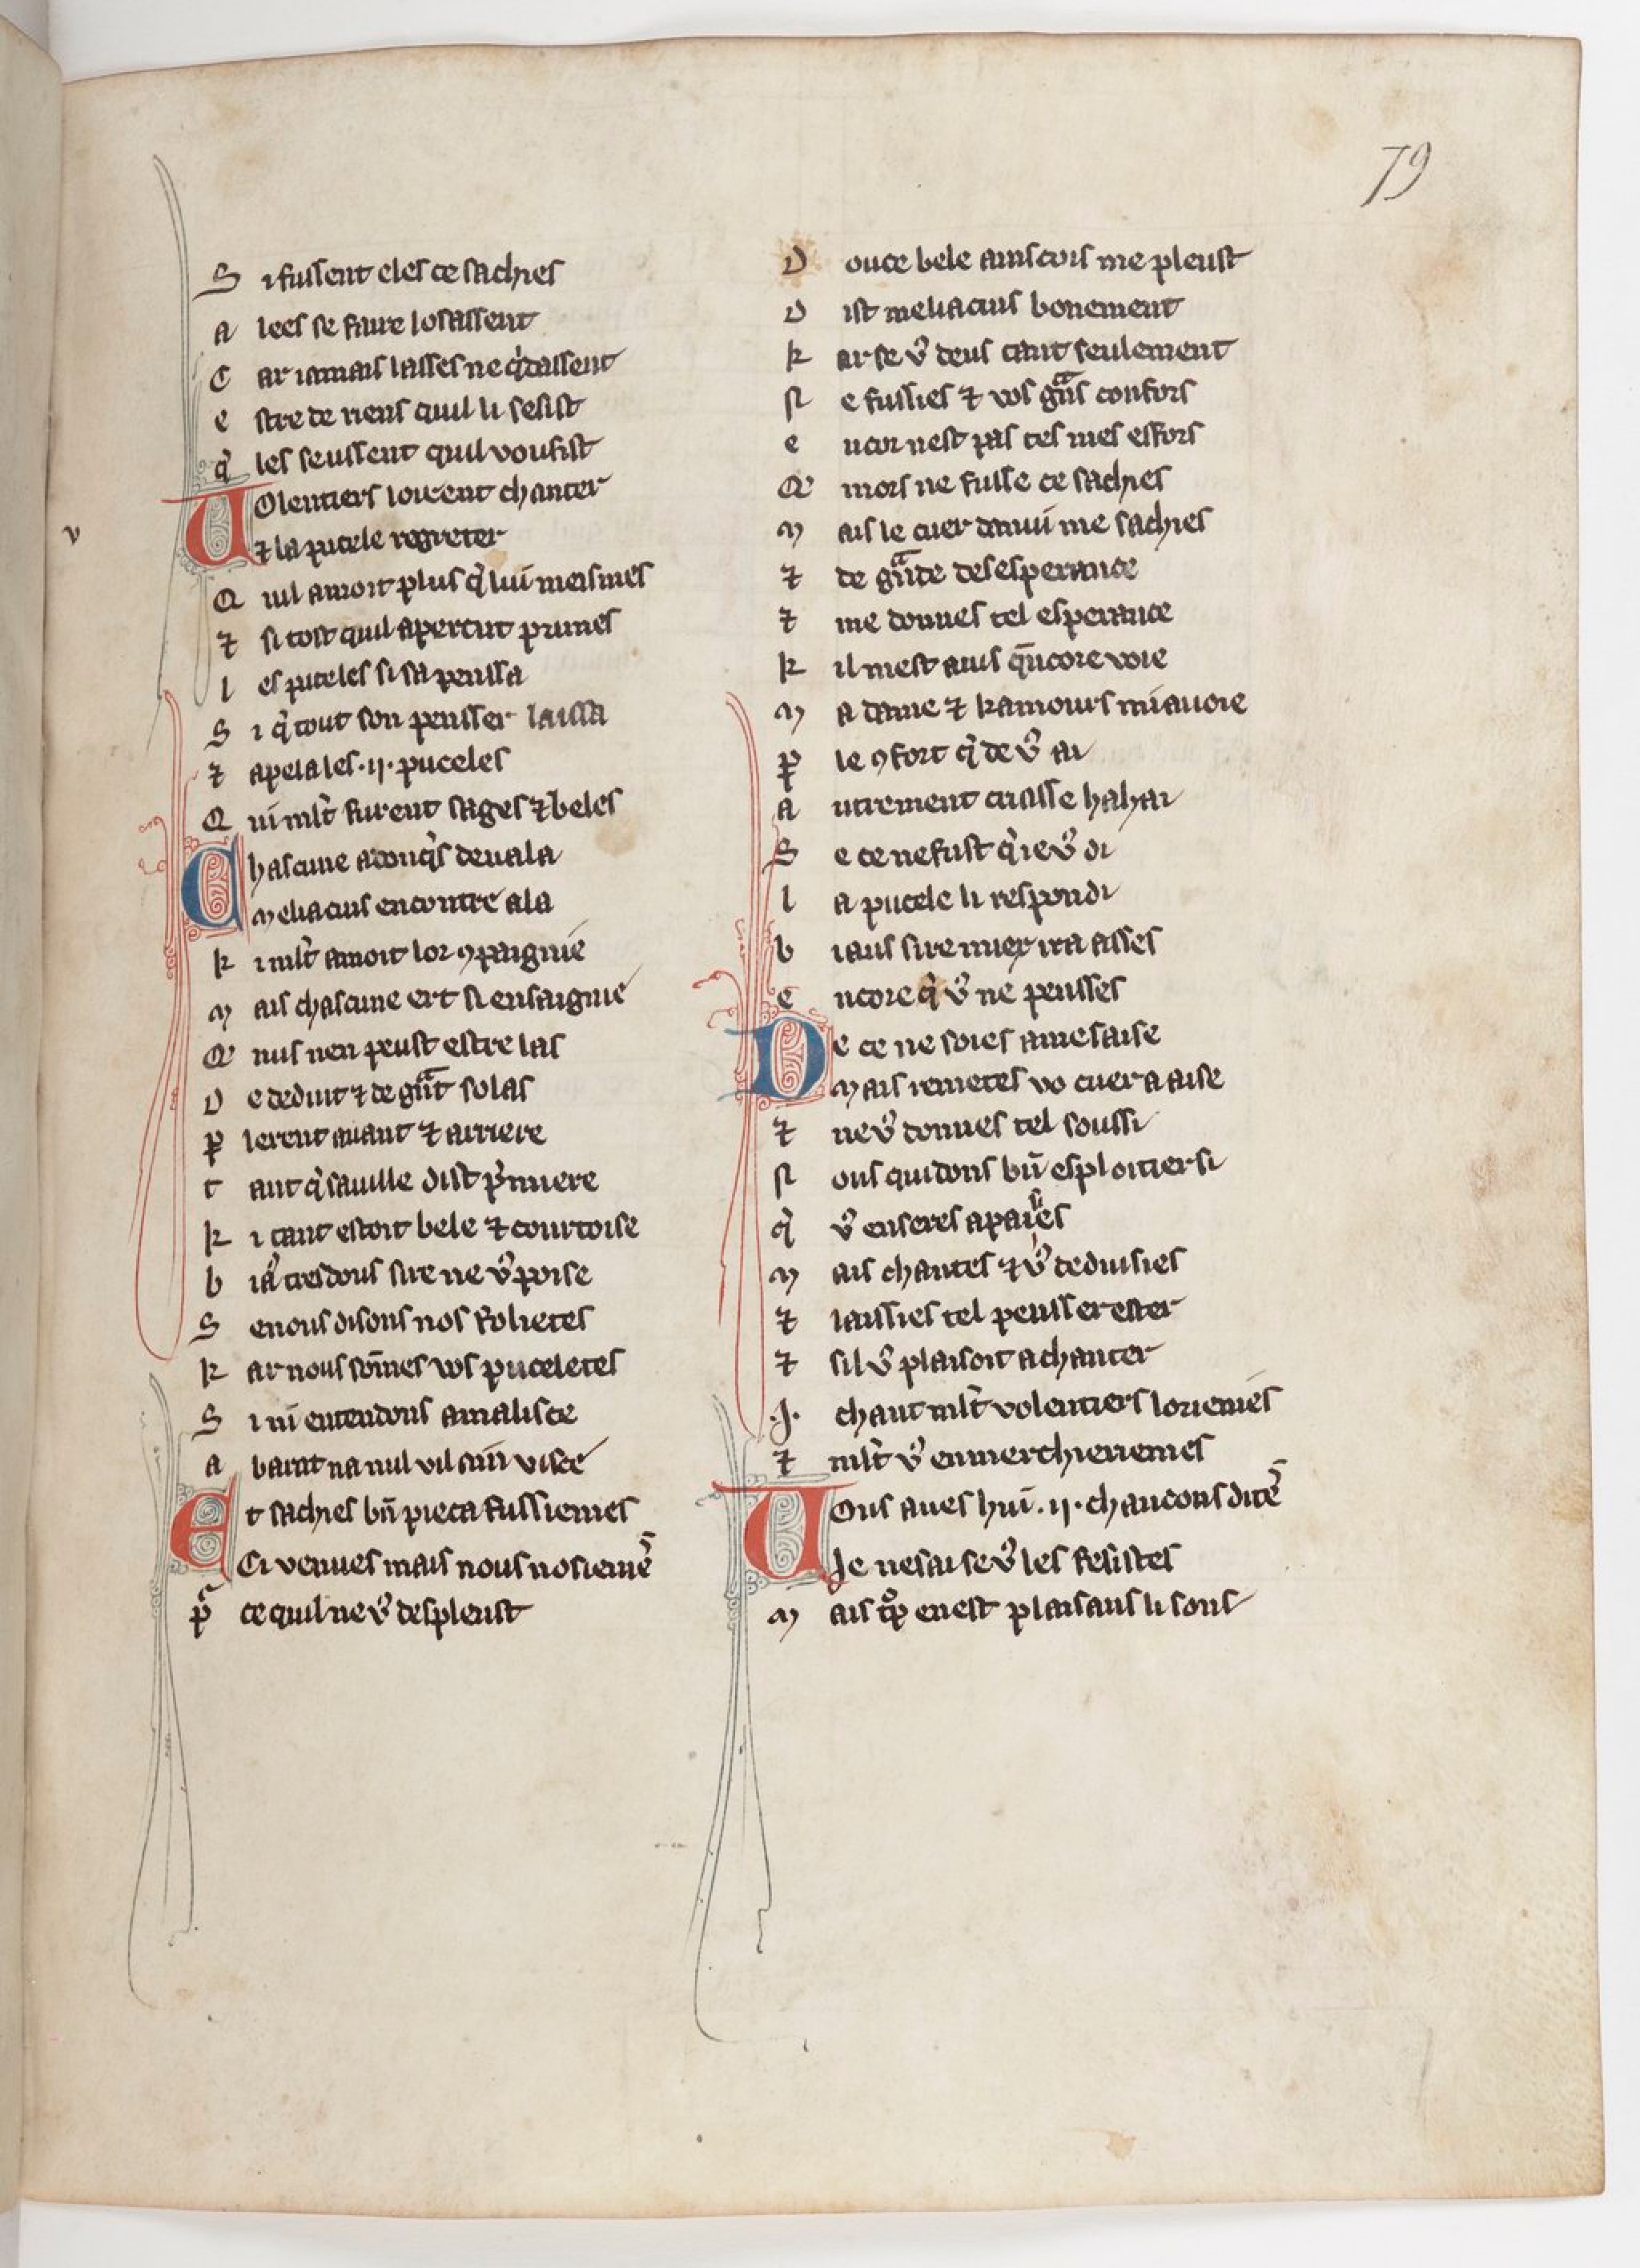 79
S i fussent eles ce sachies
a lees se faire losassent
C ar iamais lasses ne q̇dassent
e stre de riens quil li fesist
q̇ les seussent quil vousist
Uolentiers loirent chanter
⁊ la pucele regreter
Q uil amoit plus q̇ lui meismes
⁊ si tost quil apercut primes
l es puceles si sapenssa
S i q̇ tout son pensser laissa
⁊ apela les .ij. puceles
Q ui ml̅t furent sages ⁊ beles
Chascune adonq̇s deuala
Meliacius encontre ala
k i ml̅t amoit lor ꝯpaignie
M ais chascune ert si ensaignie
Q̛ nus nen peust estre las
D e deduit ⁊ de gn̅t solas
P lerent auant ⁊ arriere
t ant q̇ sauille dist p̍miere
k i tant estoit bele ⁊ courtoise
b iaͧ tres dous sire ne vͦ poise
S e nous disons nos folietes
k ar nous som̅es vos puceletes
S i ni entendons a malisce
a barat na nul vilain visce
Et sachies bn̅ pieca fussiemes
Ci venues mais nous nosiemē
pͬ ce quil ne vͦ despleust
D ouce bele ainscois me pleust
D ist meliacius bonement
k ar se vͦ deus tant seulement
N e fussies ⁊ vos gn̅s confors
e ncor nest pas tes mes esfors
Q̛ mors ne fusse ce sachies
M ais le cuer danui me sachies
⁊ de gn̅de desesperance
⁊ me donnes tel esperance
k il mest auis q̅ncore voie
M a dame ⁊ kamours mi auoie
ꝑ le ꝯfort q̇ de vͦ ai
a utrement criasse hahai
S e ce ne fust q̇ ie vͦ di
l a pucele li respondi
b iaus sire mier ira asses
e ncore q̇ vͦ ne pensses
De ce ne soies a mesaise
Mais remetes vo cuer a aise
⁊ ne vͦ donnes tel soussi
N ous quidons bn̅ esploitier si
q̇ vͦ en seres apaies
M ais chantes ⁊ vͦ deduisies
⁊ laissies tel pensser ester
⁊ sil vͦ plaisoit a chanter
.J. chant ml̅t volentiers loriemes
⁊ ml̅t vͦ en merchieriemes
Uous aues hui .ij. chancons ditē
Je ne sai se vͦ les fesistes
M ais tͦp en est plaisans li sons
v